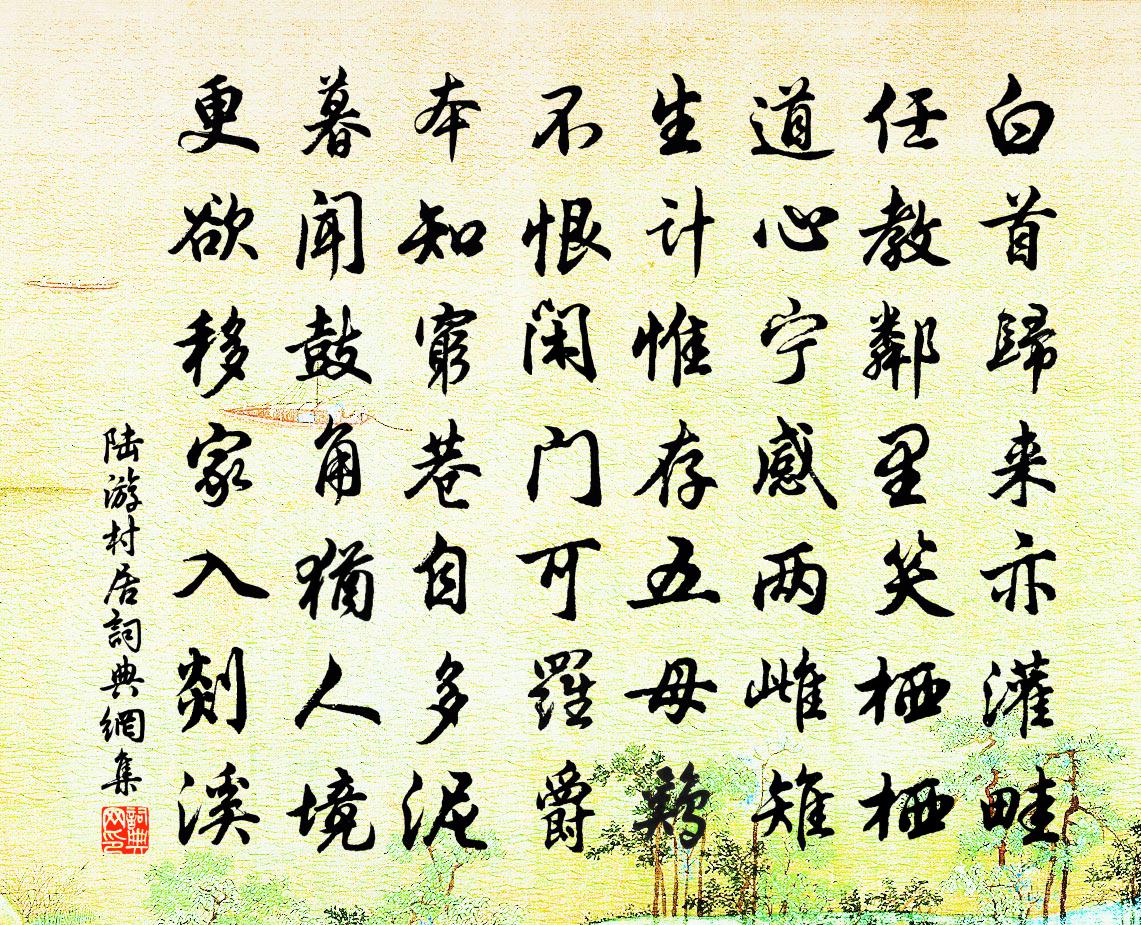 白首歸来亦灌畦
任教鄰里笑栖栖
道心宁感两雌雉
生计惟存五母鶏
不恨闲门可羅爵
本知窮巷自多泥
暮闻鼓角猶人境
更欲移家入剡溪
陆游村居詞典網集
詞典网印